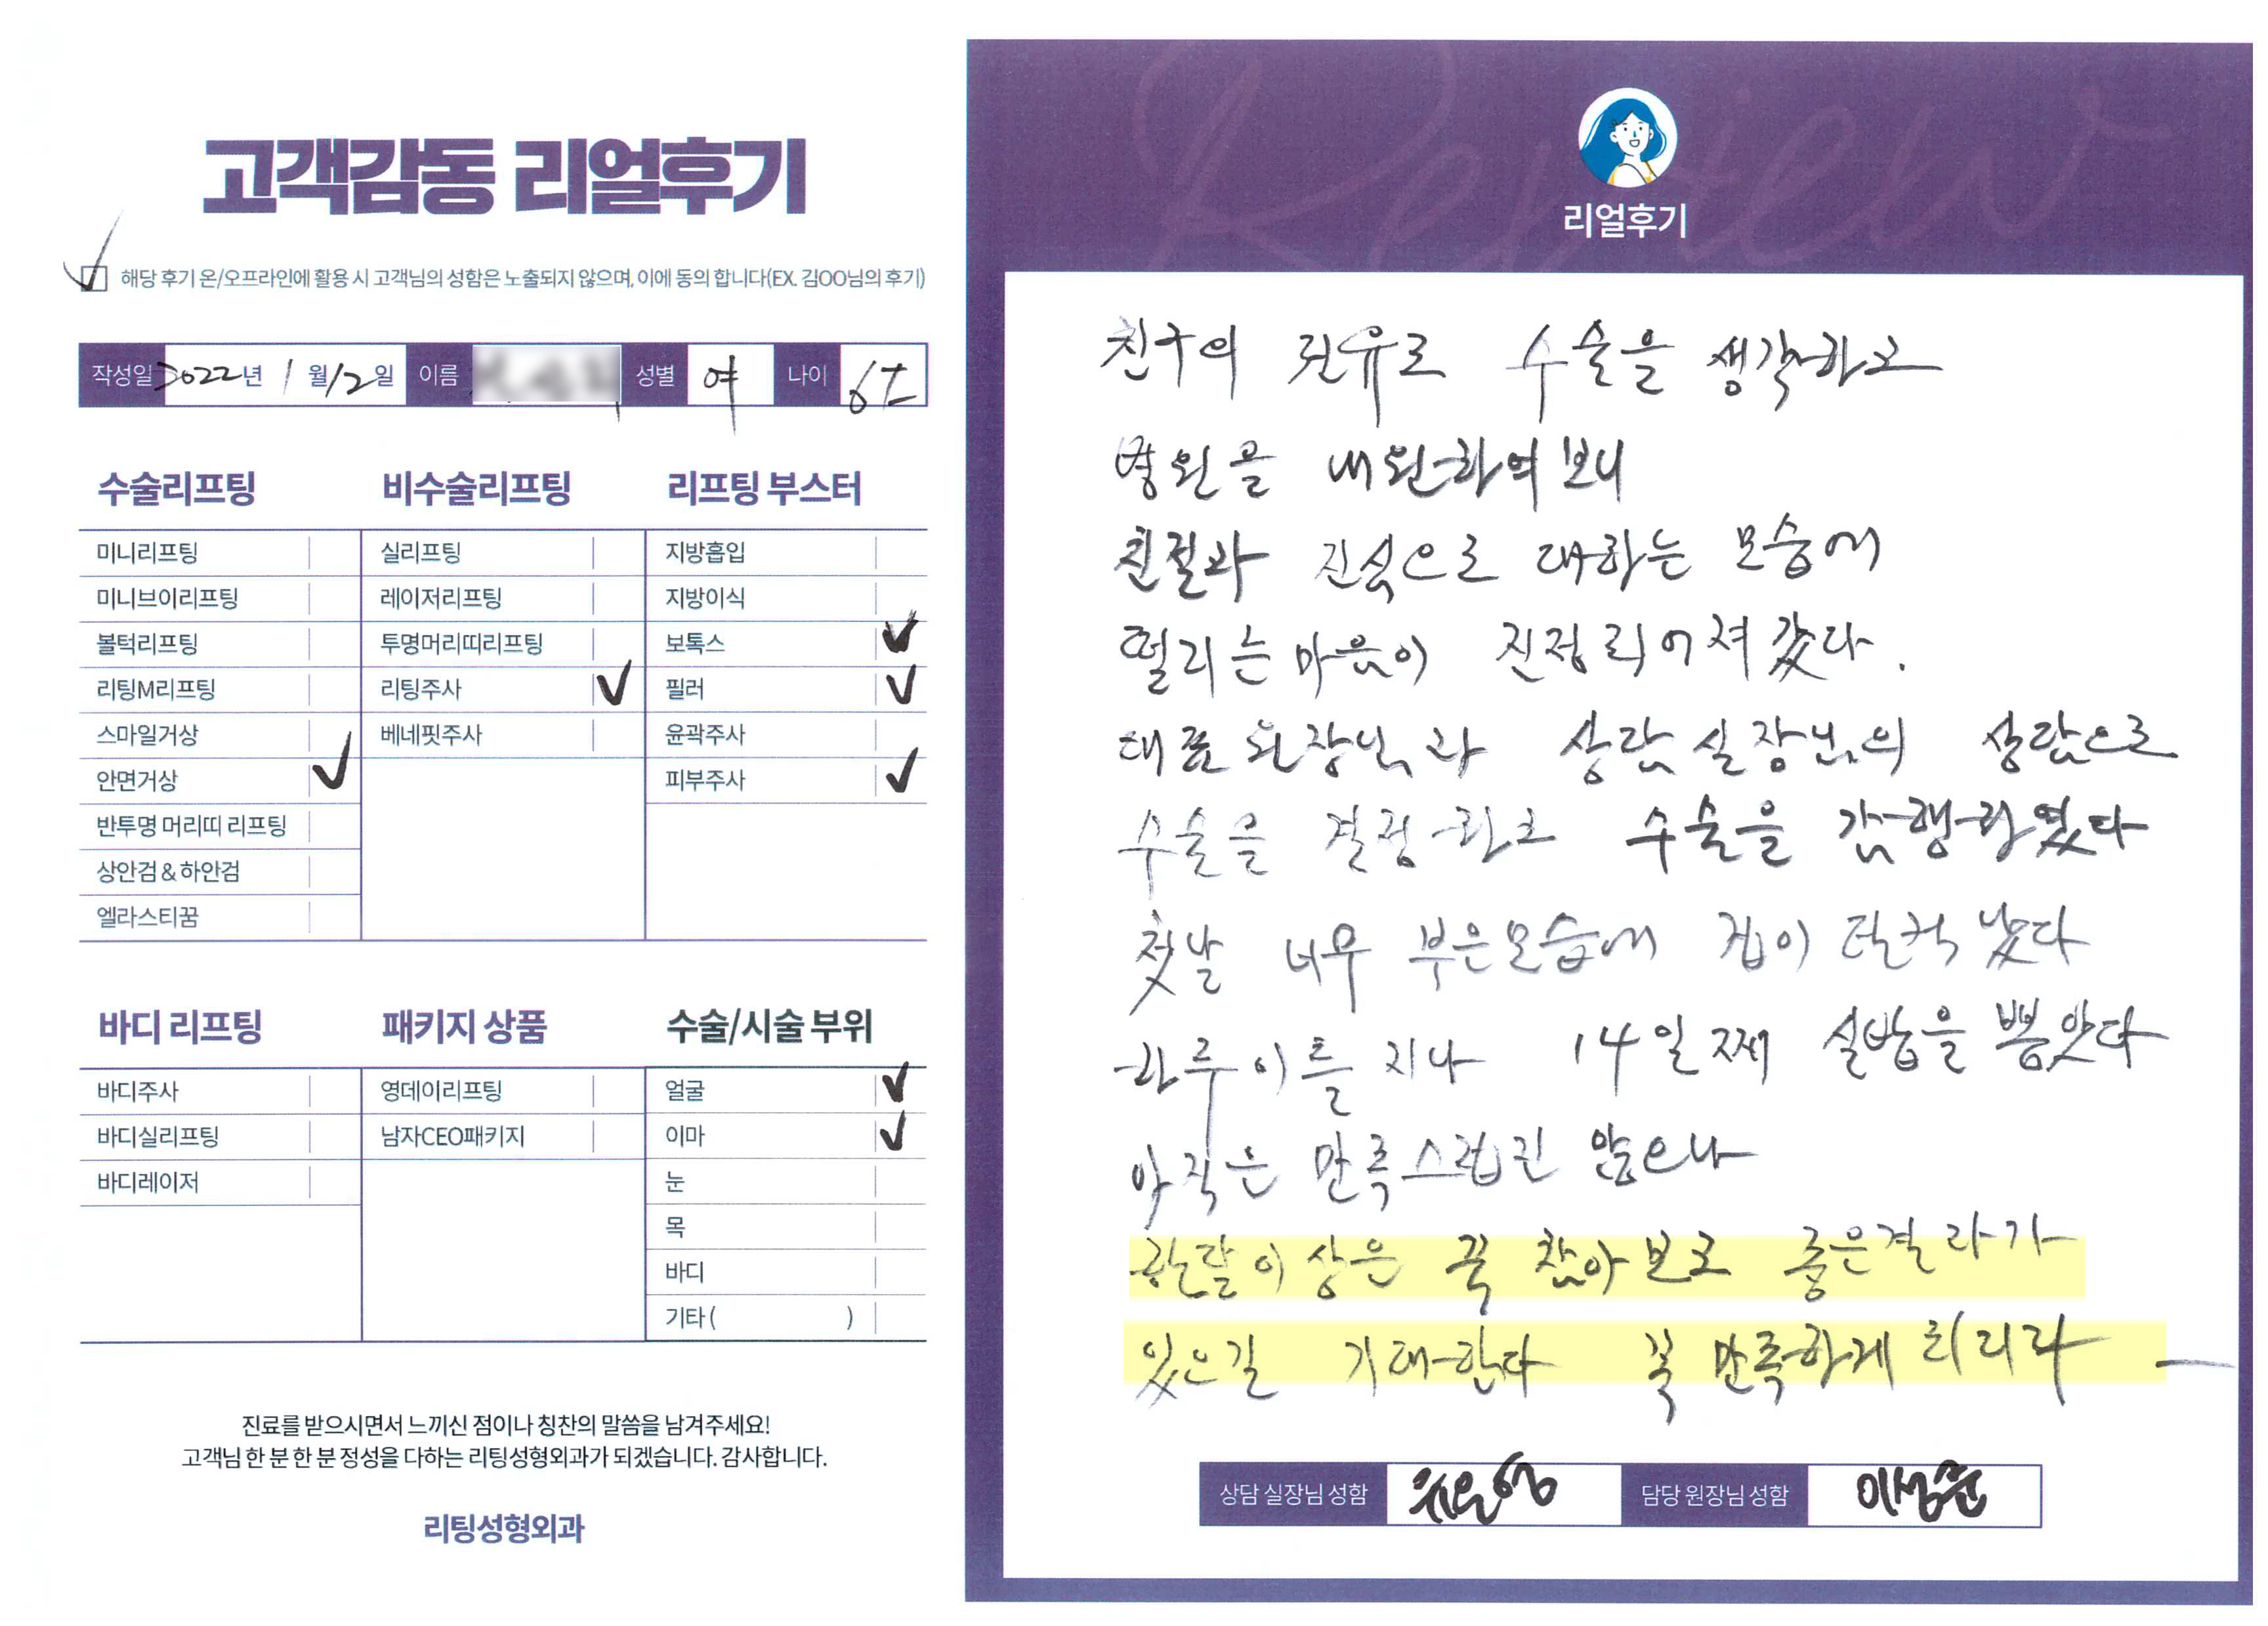 고객감동 리얼후기
해당 후기 온/오프라인에 활용 시 고객님의 성함은 노출되지 않으며, 이에 동의 합니다(EX. 김OO님의 후기)
작성일 2022년 1월 12일 이름 성별 여 나이
수술리프팅
미니리프팅
미니브이리프팅
볼턱리프팅
리팅M리프팅
스마일거상
안면거상
반투명 머리띠 리프팅
상안검 & 하안검
엘라스티꿈
비수술리프팅
실리프팅
레이저리프팅
투명머리띠리프팅
리팅주사
베네핏주사
리프팅 부스터
지방흡입
지방이식
보톡스
필러
윤곽주사
피부주사
바디 리프팅
바디주사
바디실리프팅
바디레이저
패키지 상품
영데이리프팅
남자CEO패키지
수술/시술 부위
얼굴
이마
눈
목
바디
기타( )
진료를 받으시면서 느끼신 점이나 칭찬의 말씀을 남겨주세요!
고객님 한 분 한 분 정성을 다하는 리팅성형외과가 되겠습니다. 감사합니다.
리팅성형외과
Review
리얼후기
친구의 권유로 수술을 생각하고
병원을 내원하여 보니
친절과 진심으로 대하는 모습에
떨리는 마음이 진정되어져 갔다.
대표원장님과 상담실장님의 상담으로
수술을 결정하고 수술을 감행하였다
첫날 너무 부은모습에 겁이 덜컥 났다
하루이틀 지나 14일째 실밥을 뽑았다
아직은 만족스럽진 않으나
한달이상은 꾹 참아보고 좋은결과가
있으길 기대한다 꼭 만족하게 되리라
상담 실장님 성함 담당 원장님 성함